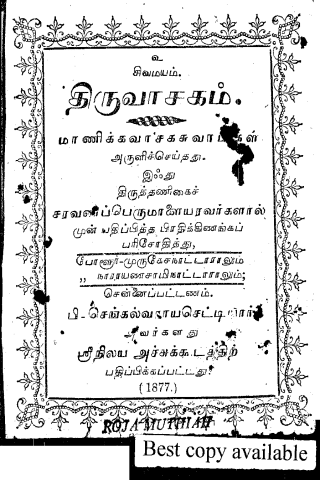 உ
சிவமயம்.
திருவாசகம்.
மாணிக்கவாசகசுவாமிகள்
அருளிச்செய்தது.
இஃது
திருத்தணிகைச்
சரவணப்பெருமாளையரவர்களால்
முன் பதிப்பித்த பிரதிக்கிணங்கப்
பரிசோதித்து,
போரூர்-முருகேசநாட்டாராலும்
,, நாராயணசாமிநாட்டாராலும்;
சென்னைப்பட்டணம்.
பி-செங்கல்வராயசெட்டியார்
வர்களது
ஸ்ரீநிலய அச்சுக்கூடத்திற்
பதிப்பிக்கப்பட்டது
(1877.)
ROJA MUTHIAH
Best copy available